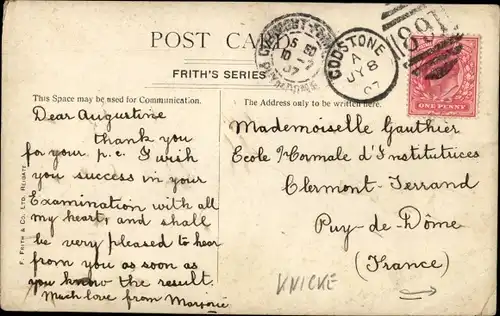 POST CARD
FRITH'S SERIES
CLERMONT-FERRAND
PUY DE DOME
GODSTONE
A
JY 8
07
891
ONE PENNY
This Space may be used for Communication.
Dear Augustine
thank you
for your p.c. I wish
you success in your
Examination with all
my heart, and shall
be very pleased to hear
from you as soon as
you know the result.
Much love from Marjorie
F. FRITH & CO. LTD. REIGATE
The Address only to be written here.
Mademoiselle Gauthier
Ecole Normale d'Institutrices
Clermont-Ferrand
Puy-de-Dôme
(France)
KNICKE